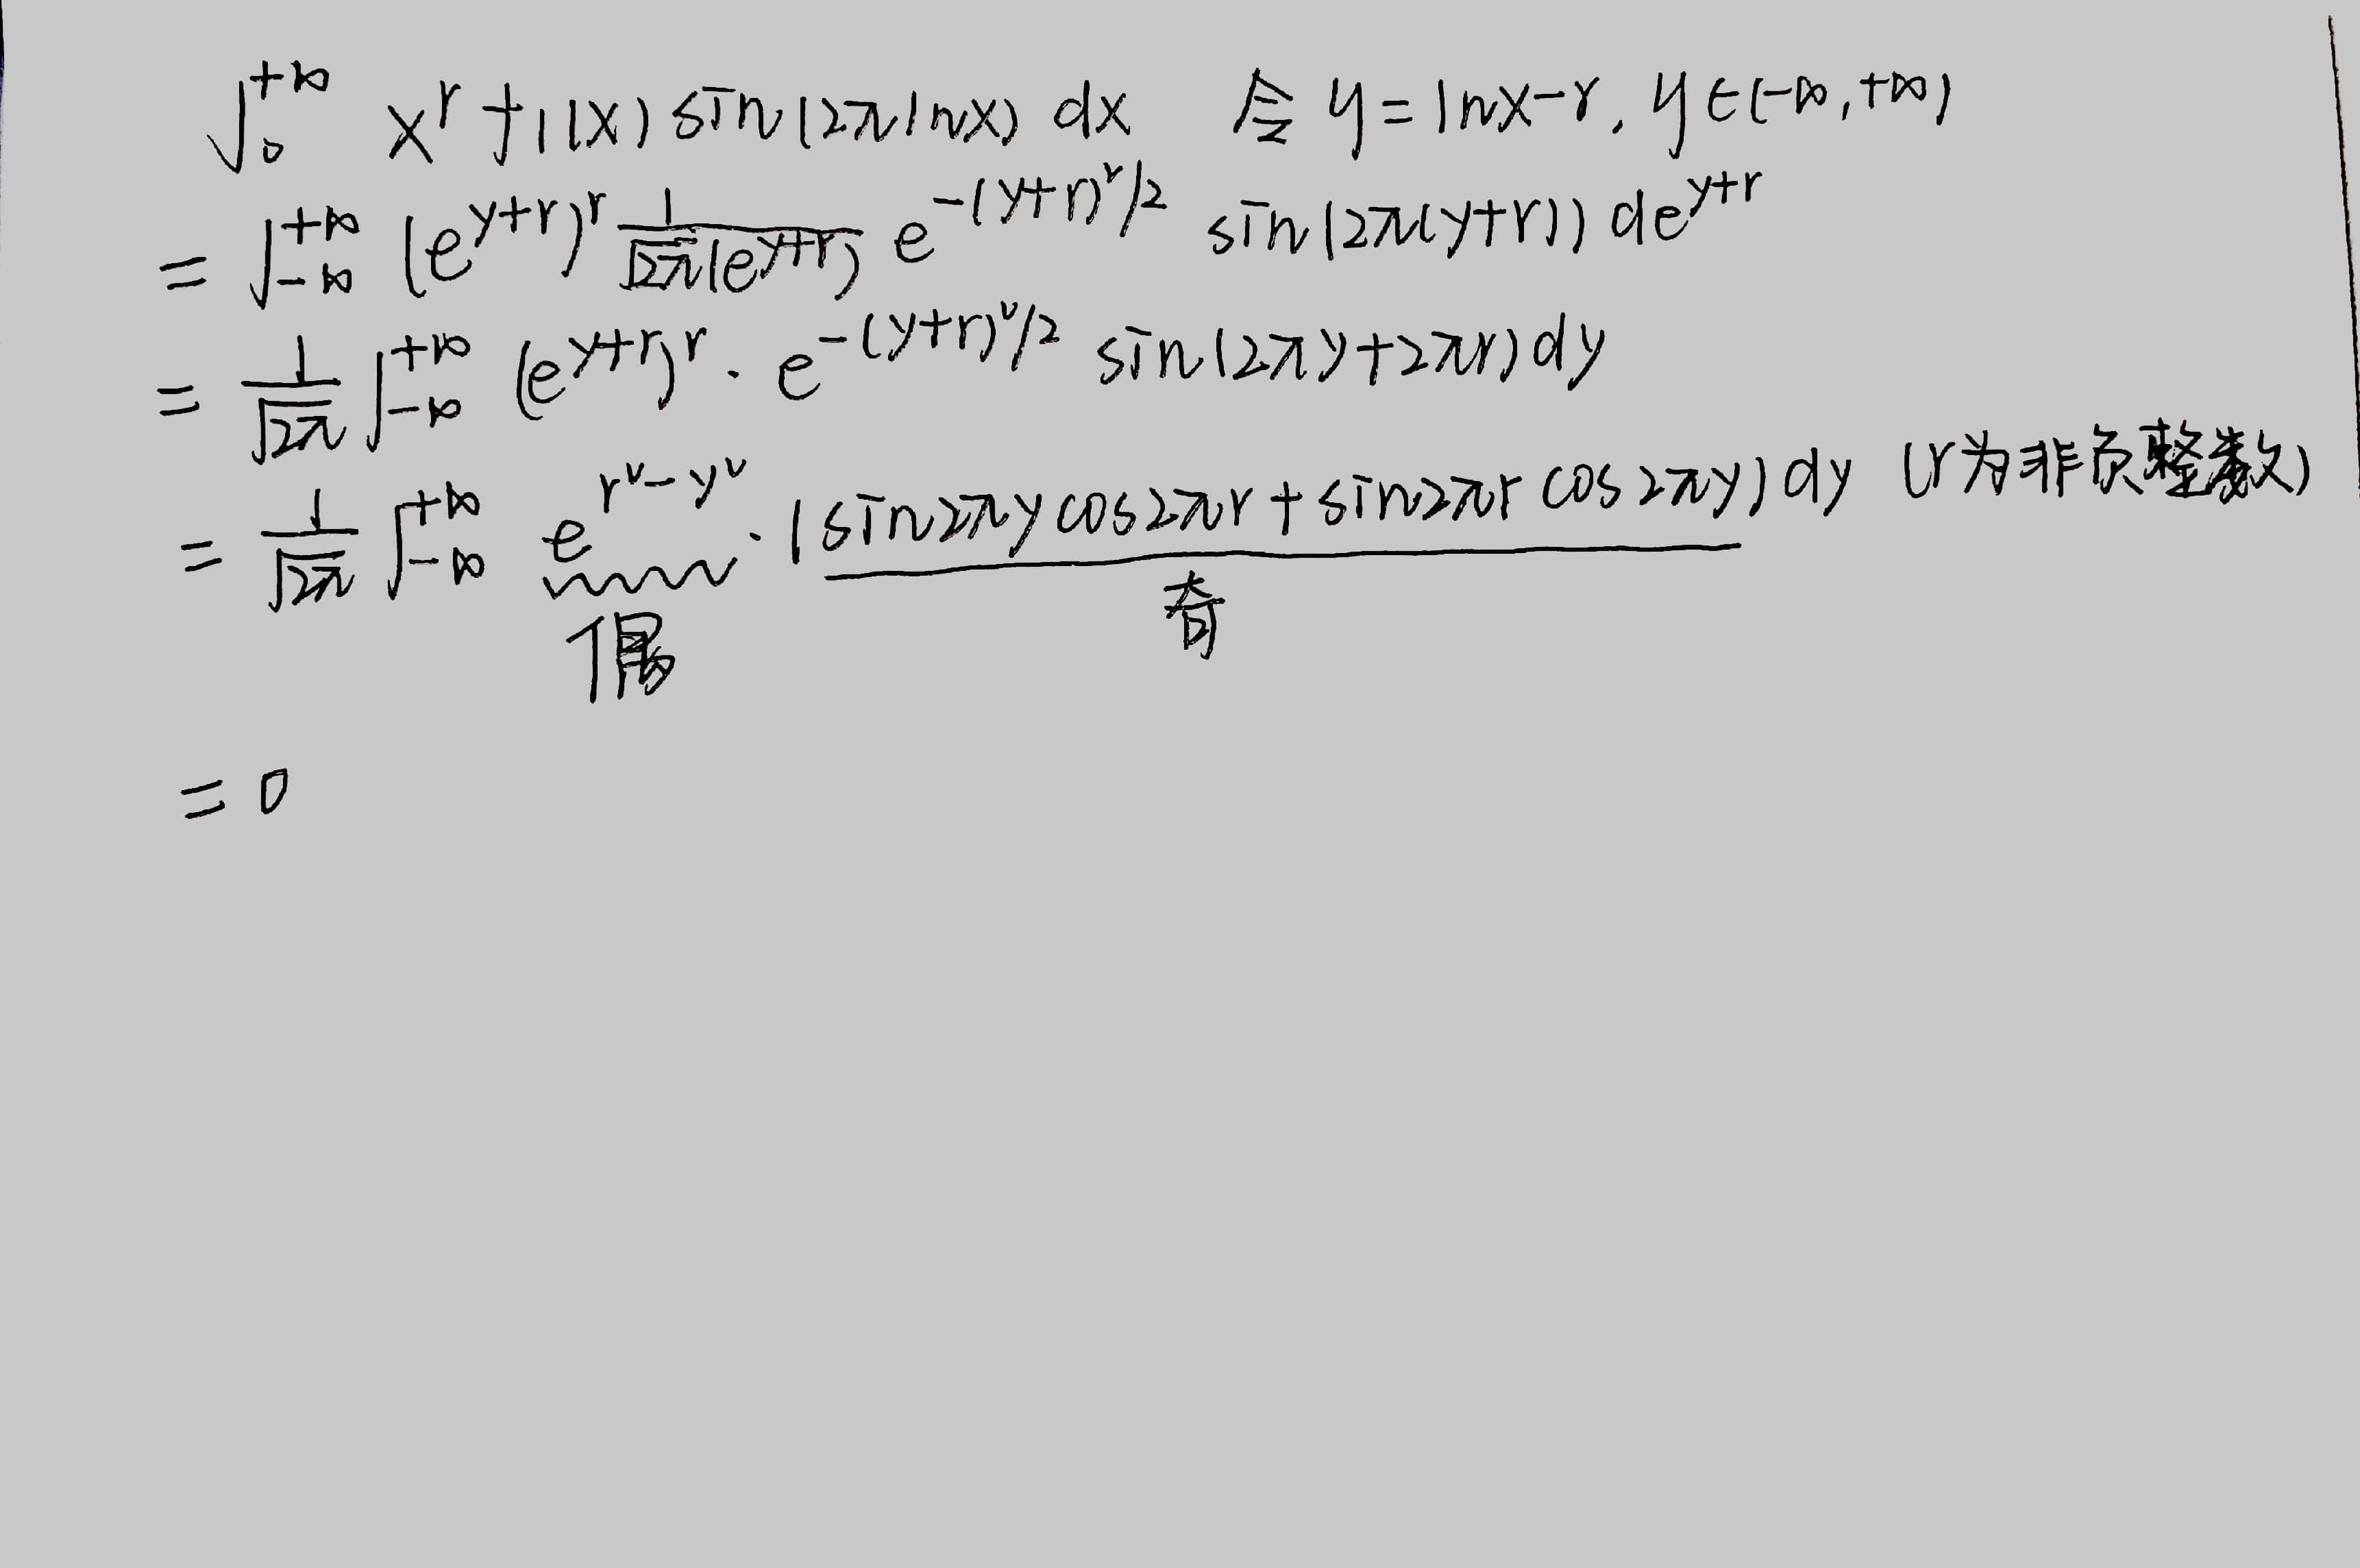 ∫₀^{+∞} x^r f₁(x) sin(2π lnx) dx 令 y = lnx - r, y ∈ (-∞, +∞)
= ∫_{-∞}^{+∞} (e^{y+r})^r \frac{1}{\sqrt{2π}(e^{y+r})} e^{-(y+r)²/2} sin(2π(y+r)) de^{y+r}
= \frac{1}{\sqrt{2π}} ∫_{-∞}^{+∞} (e^{y+r})^r · e^{-(y+r)²/2} sin(2πy+2πr) dy
= \frac{1}{\sqrt{2π}} ∫_{-∞}^{+∞} e^{r²-y²} · (sin2πy cos2πr + sin2πr cos2πy) dy (r为非负整数)
偶 奇
= 0